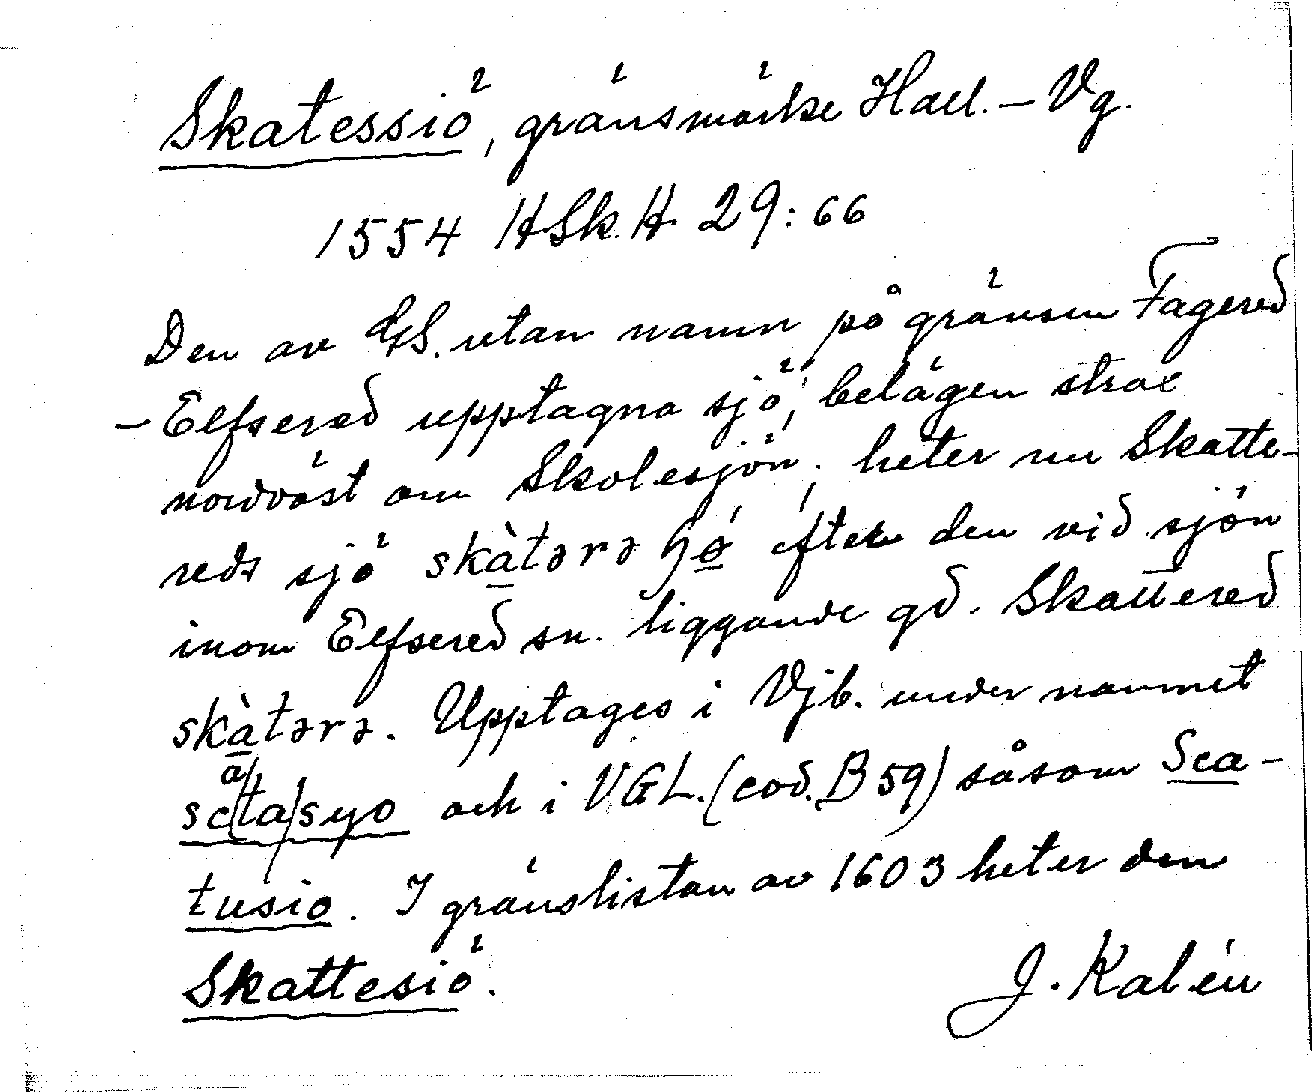 Skatessiö, gränsmärke Hall. – Vg.
1554 HSkH 29:66
Den av GS. utan namn på gränsen Fagered
– Elfsered upptagna sjö, belägen strax
nordväst om Skolesjön, heter nu Skatte-
reds sjö skàtərə ɧø̀ efter den vid sjön
inom Elfsered sn. liggande gd. Skattered
skàtərə. Upptages i Vjb. under namnet
sc/a/ta/syo och i VGL. (cod. B 59) såsom Sca-
tusio. I gränslistan av 1603 heter den
Skattesiö.
J. Kalén